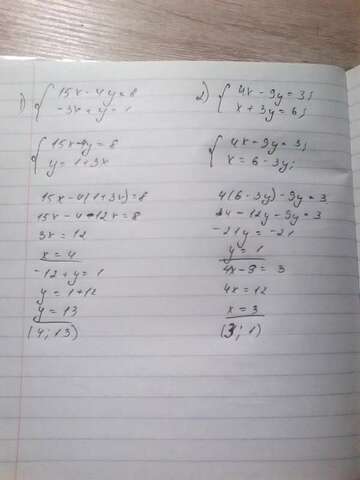 1) { 15x - 4y = 8
-3x + y = 1
{ 15x - 4y = 8
y = 1 + 3x
15x - 4(1 + 3x) = 8
15x - 4 - 12x = 8
3x = 12
x = 4
-12 + y = 1
y = 1 + 12
y = 13
(4; 13)
2) { 4x - 9y = 3;
x + 3y = 6;
{ 4x - 9y = 3;
x = 6 - 3y;
4(6 - 3y) - 9y = 3
24 - 12y - 9y = 3
-21y = -21
y = 1
4x - 9 = 3
4x = 12
x = 3
(3; 1)